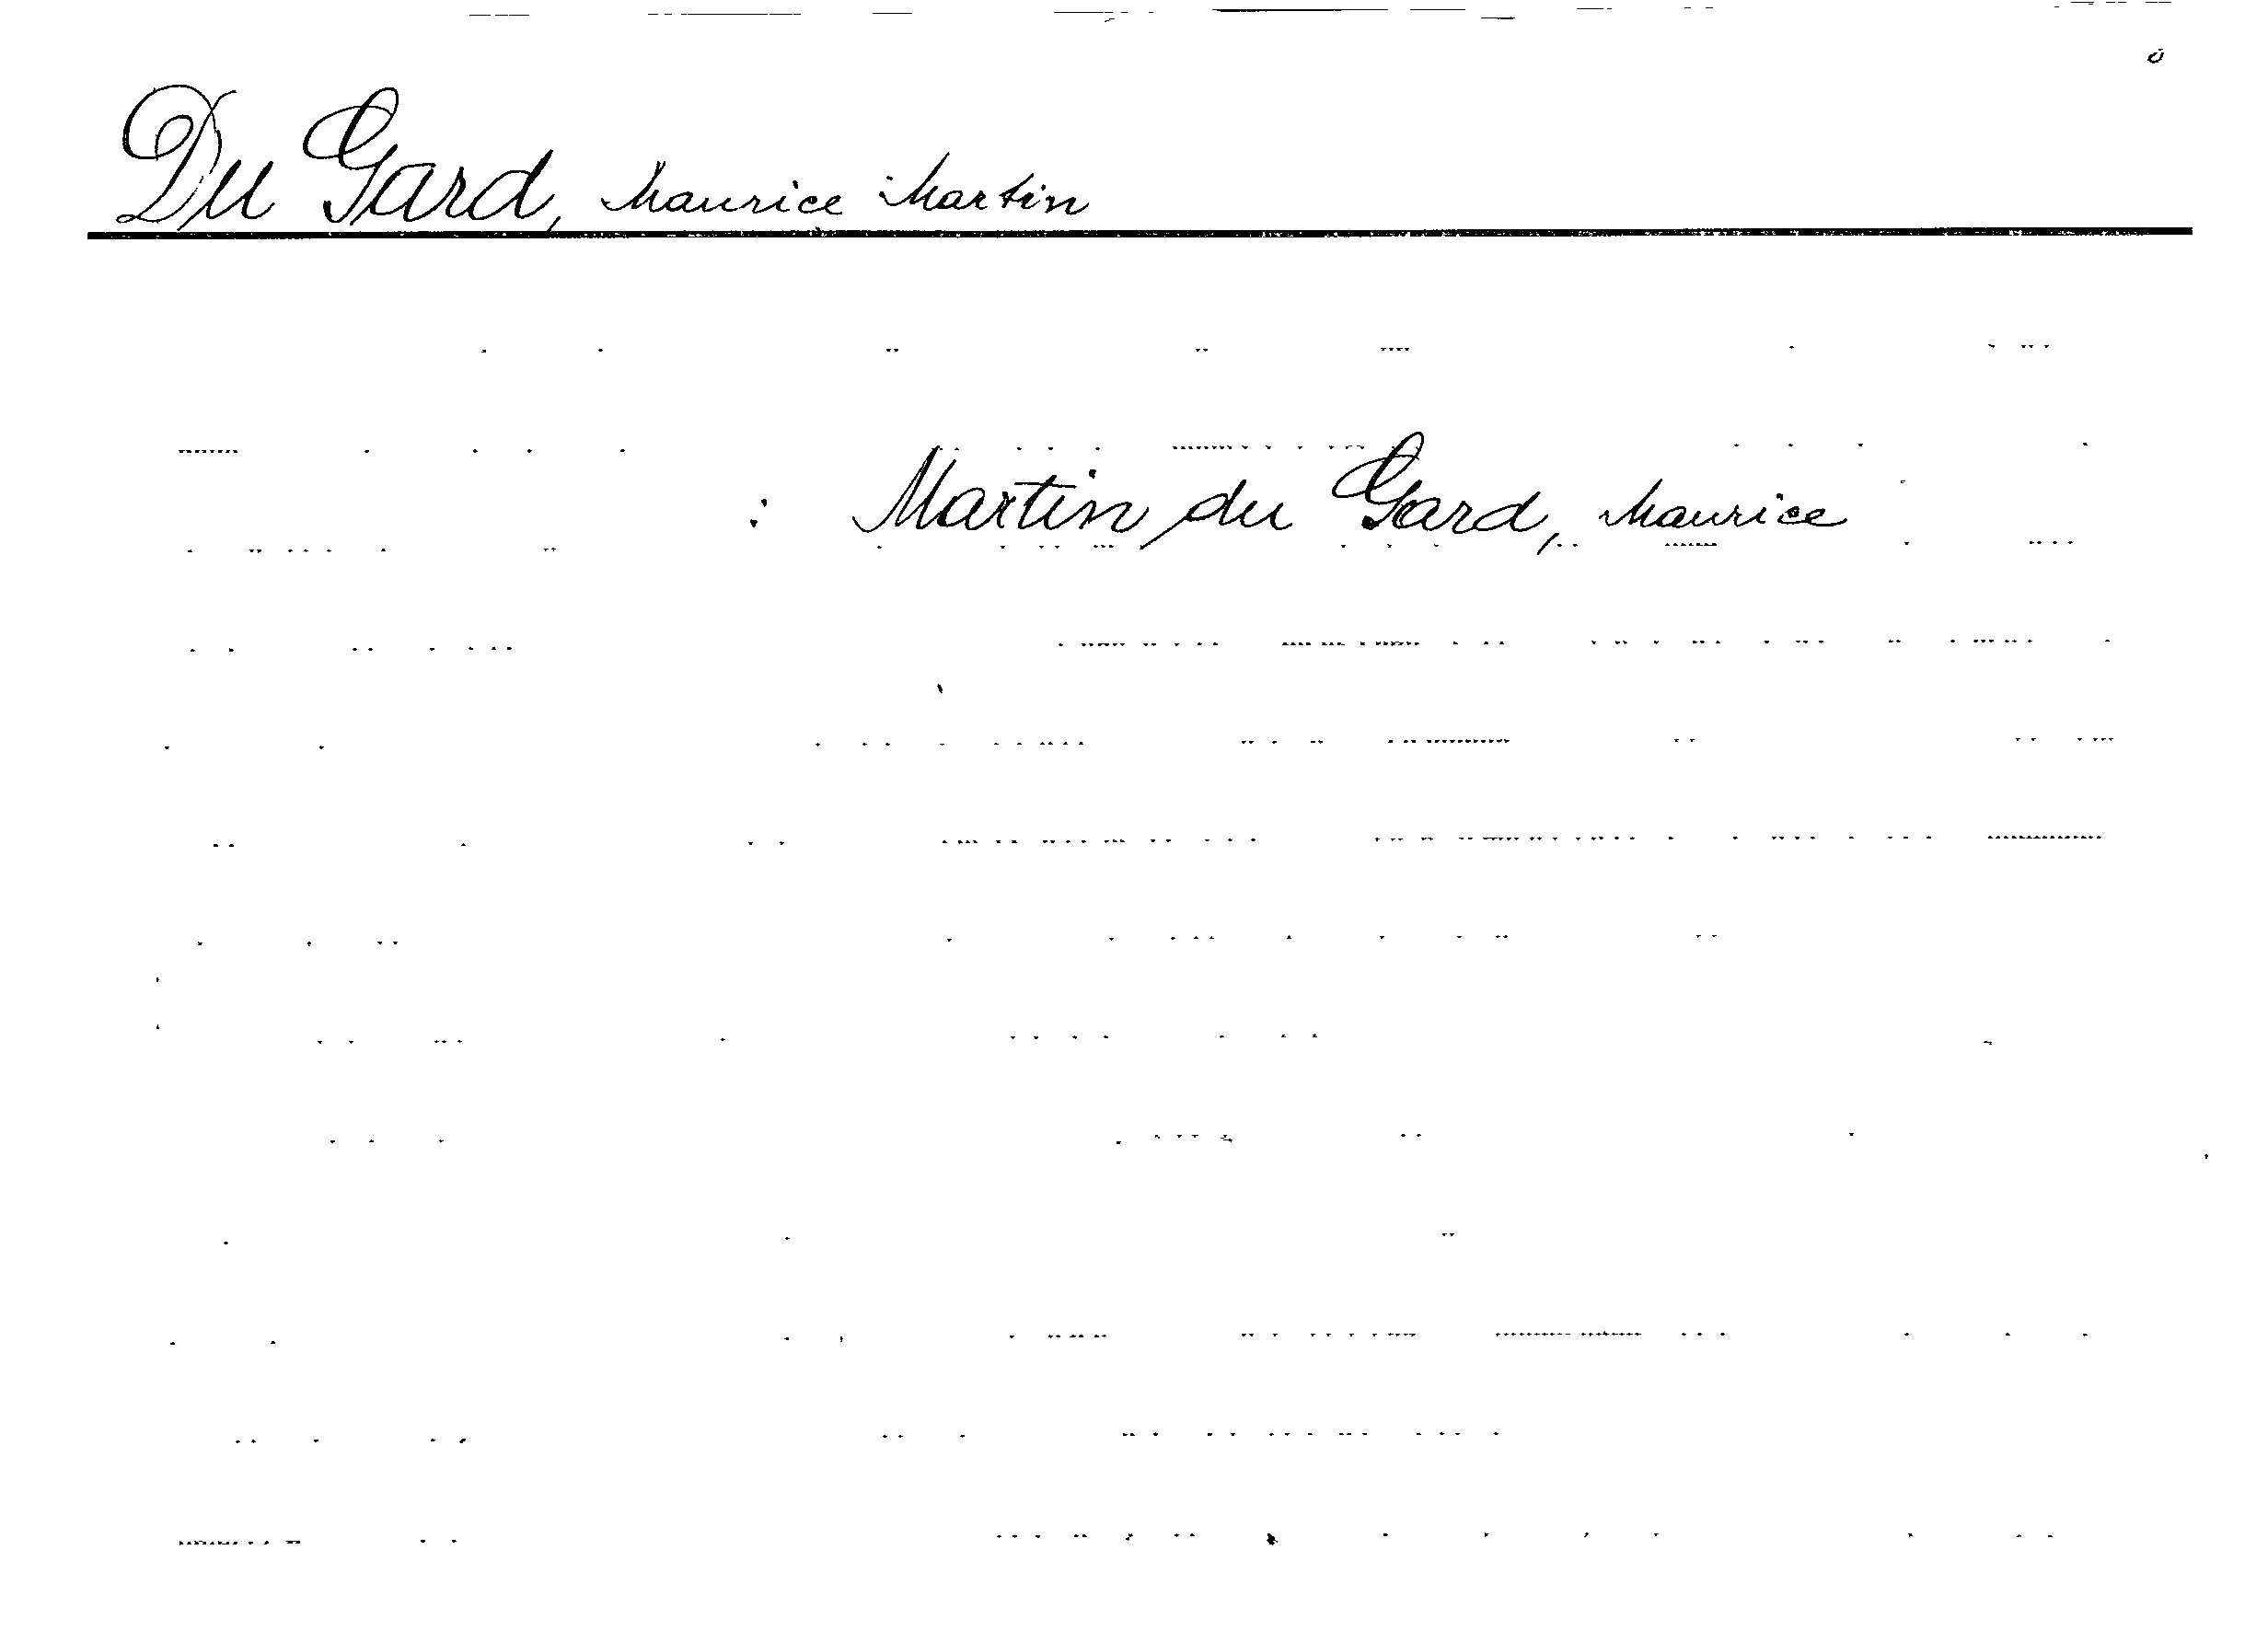 Du Gard, Maurice Martin
: Martin du Gard, Maurice